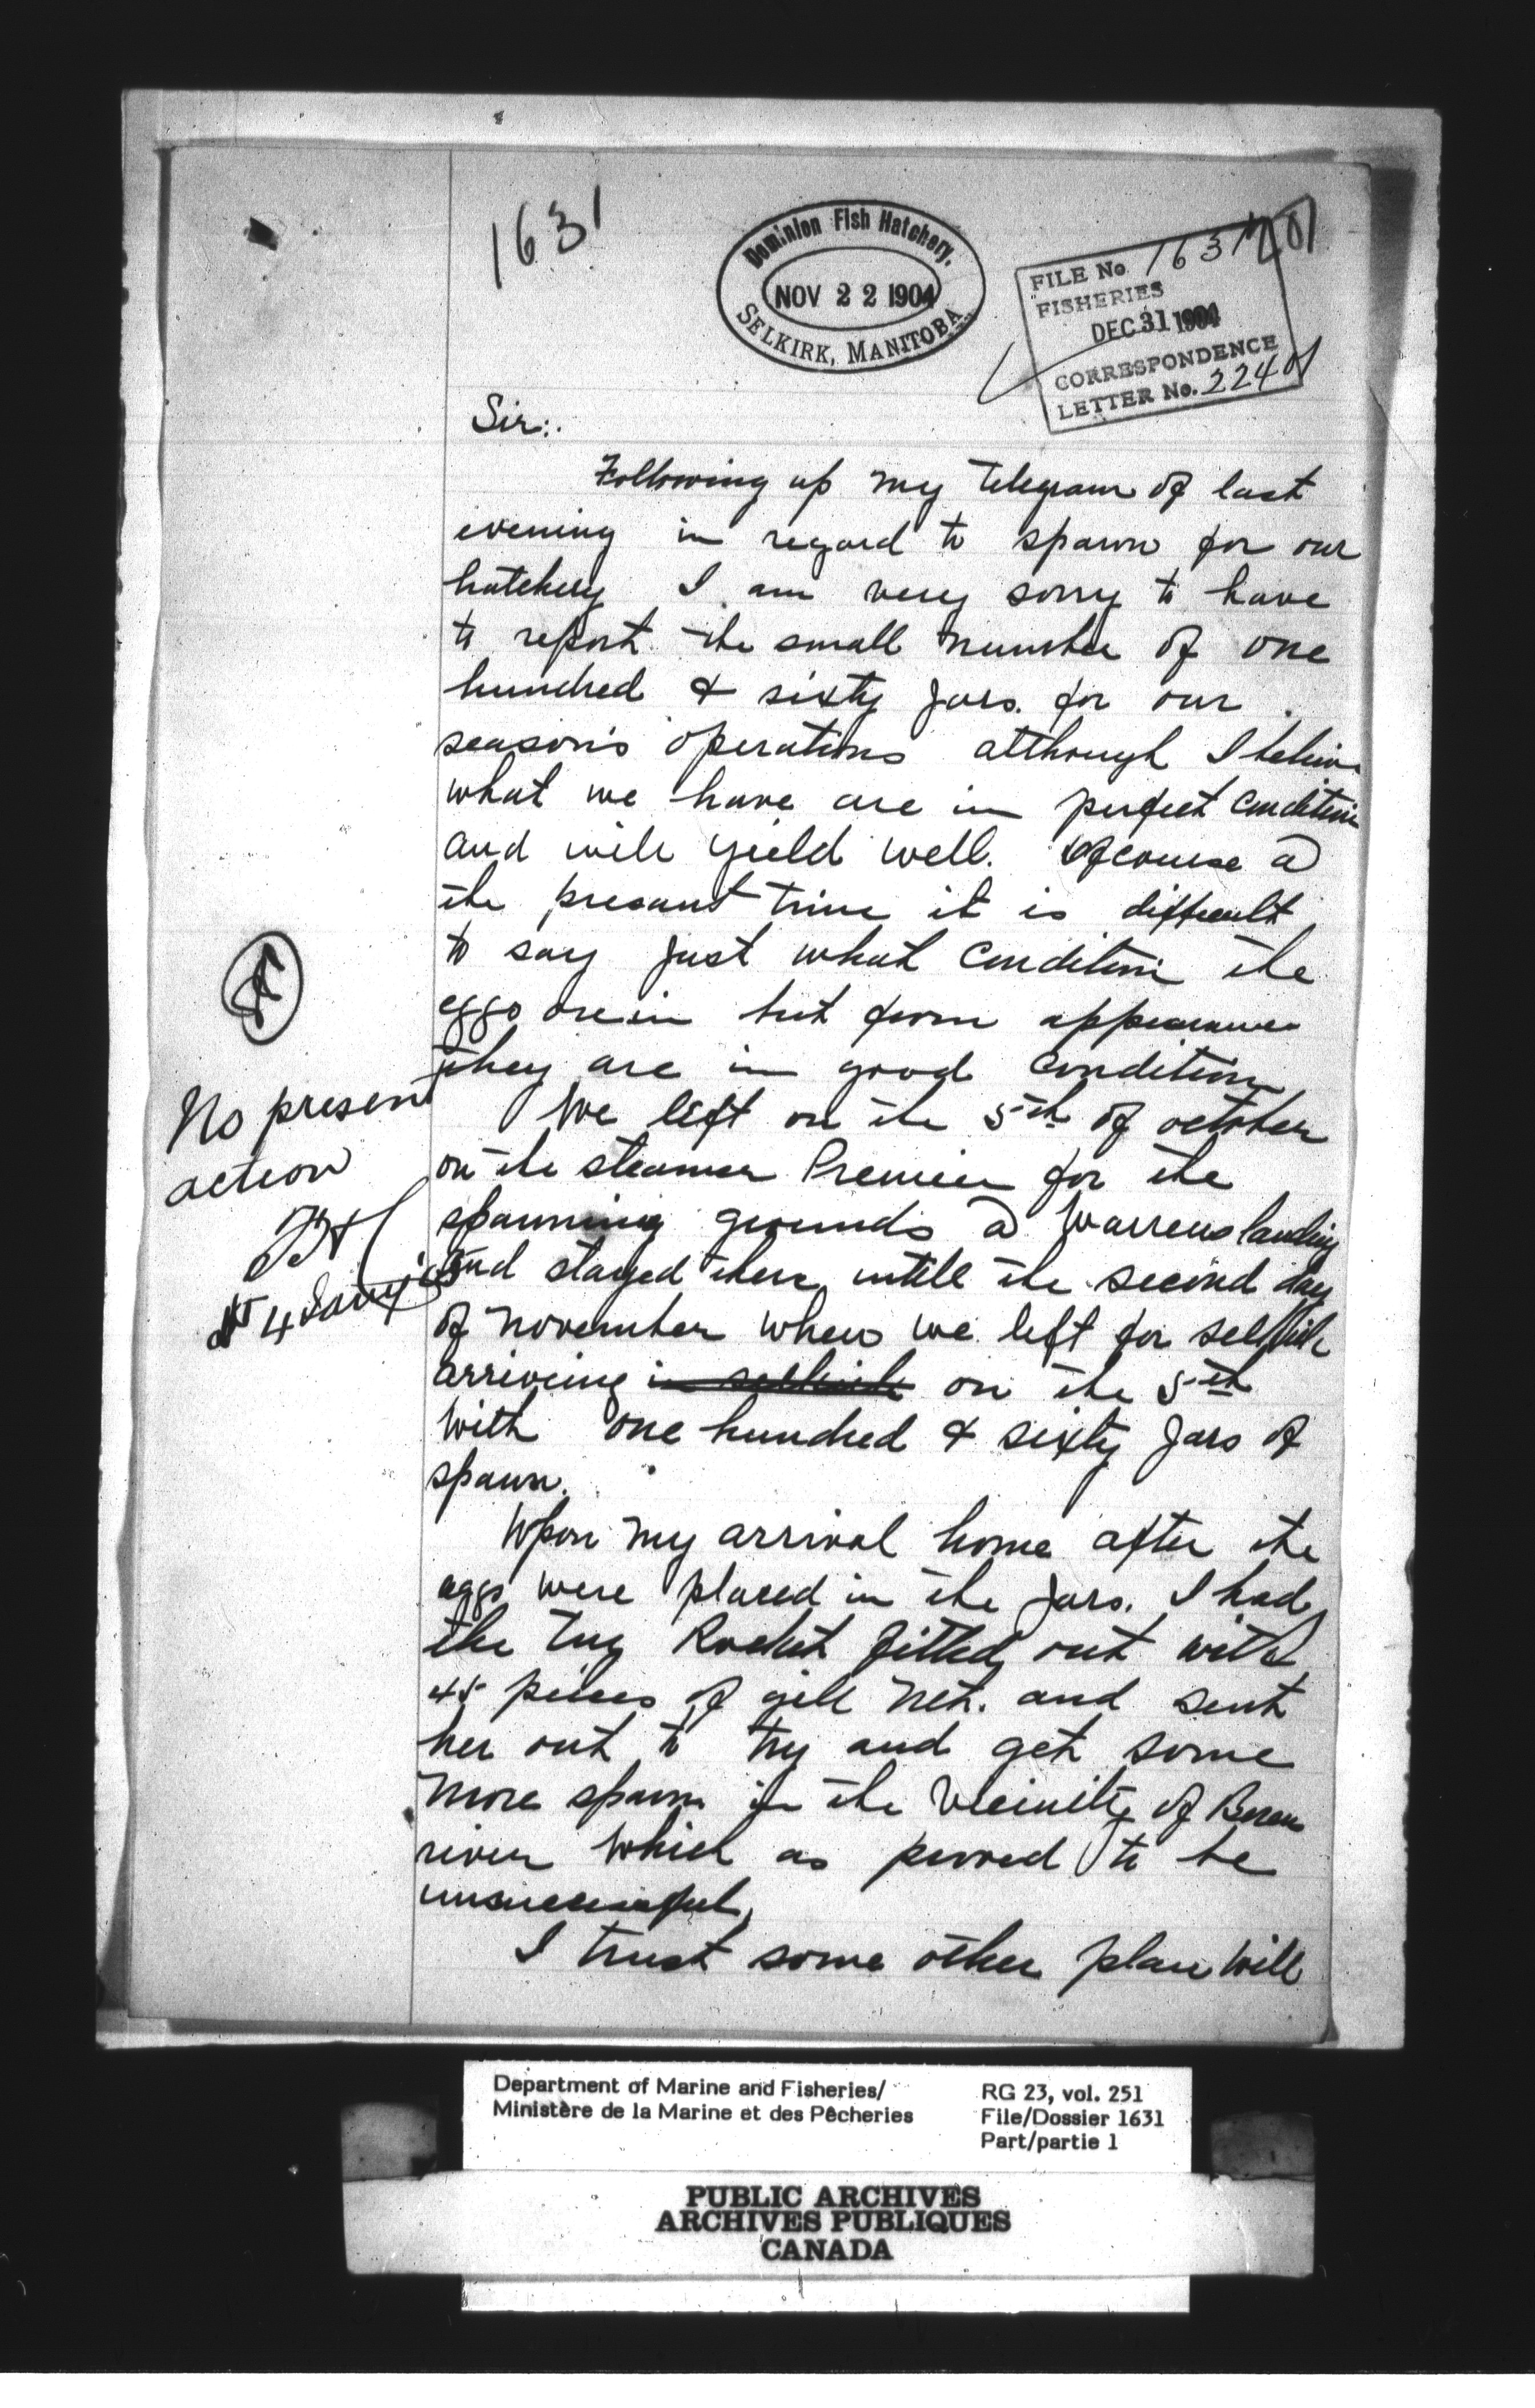 1631
Dominion Fish Hatchery.
NOV 22 1904
SELKIRK, MANITOBA
FILE No 1631
FISHERIES
DEC 31 1904
CORRESPONDENCE
LETTER No. 224
Sir:.
Following up my telegram of last
evening in regard to spawn for our
hatchery I am very sorry to have
to report the small number of one
hundred & sixty Jars. for our
season's operations although I believe
what we have are in perfect condition
and will yield well. Of course @
the presant time it is difficult
to say just what condition the
eggs are in but from appearances
they are in good condition
We left on the 5th of october
on the steamer Premier for the
spawning grounds @ Warrens landing
and stayed there untill the second day
of november when we left for selkirk
arriveing in selkirk on the 5th
With one hundred & sixty Jars of
spawn.
Upon my arrival home after the
eggs were placed in the Jars. I had
the tug Rocket fitted out with
45 pieces of gill net. and sent
her out to try and get some
more spawn in the vicinity of Berens
river which as proved to be
unsuccessful,
I trust some other plan will
No present
action
4 Jany
Department of Marine and Fisheries/
Ministère de la Marine et des Pêcheries
RG 23, vol. 251
File/Dossier 1631
Part/partie 1
PUBLIC ARCHIVES
ARCHIVES PUBLIQUES
CANADA